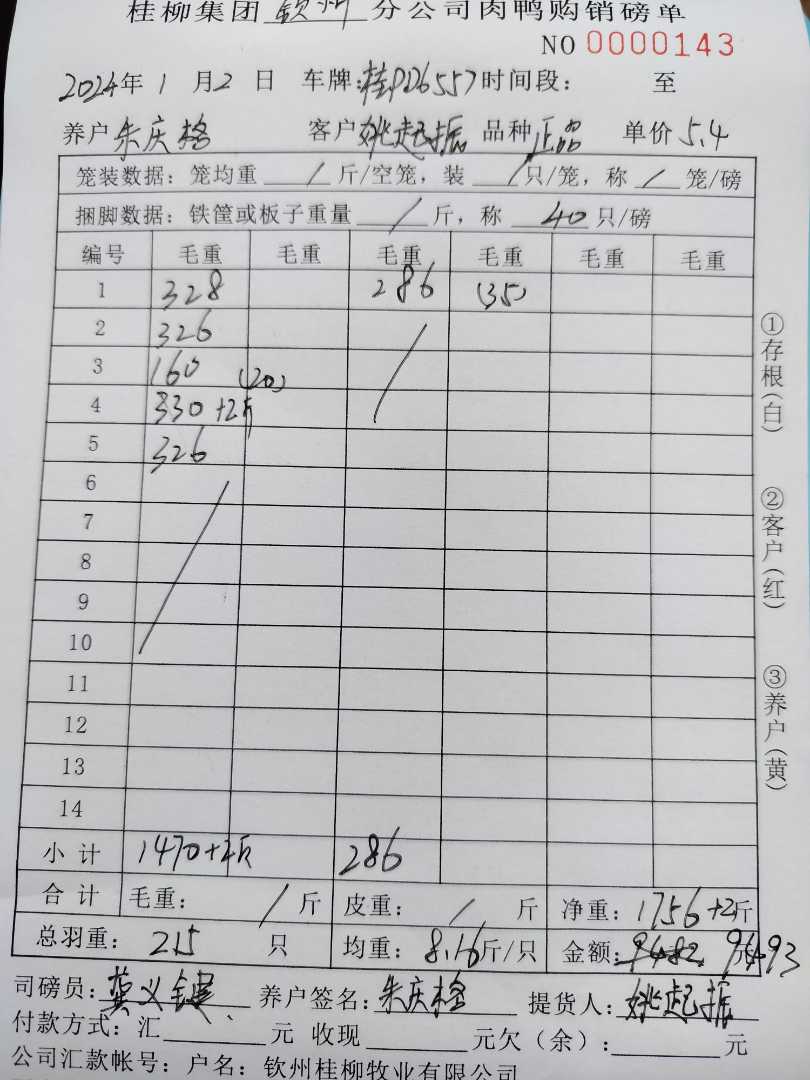 桂柳集团 钦州 分公司肉鸭购销磅单
NO 0000143
2024年 1 月 2 日 车牌:桂PD6557 时间段: 至
养户 朱庆格 客户 姚起振 品种 正品 单价 5.4
笼装数据: 笼均重 / 斤/空笼, 装 / 只/笼, 称 / 笼/磅
捆脚数据: 铁筐或板子重量 / 斤, 称 40 只/磅
编号 毛重 毛重 毛重 毛重 毛重 毛重
1 328 286 (35)
2 326
3 160 (20)
4 330+2斤
5 326
6
7
8
9
10
11
12
13
14
小计 1470+2斤 286
合计 毛重: / 斤 皮重: / 斤 净重: 1756+2斤
总羽重: 215 只 均重: 8.16斤/只 金额: 9482 元 9493
司磅员: 龚义键 养户签名: 朱庆格 提货人: 姚起振
付款方式: 汇 元 收现 元欠(余): 元
公司汇款帐号: 户名: 钦州桂柳牧业有限公司
①存根(白)
②客户(红)
③养户(黄)